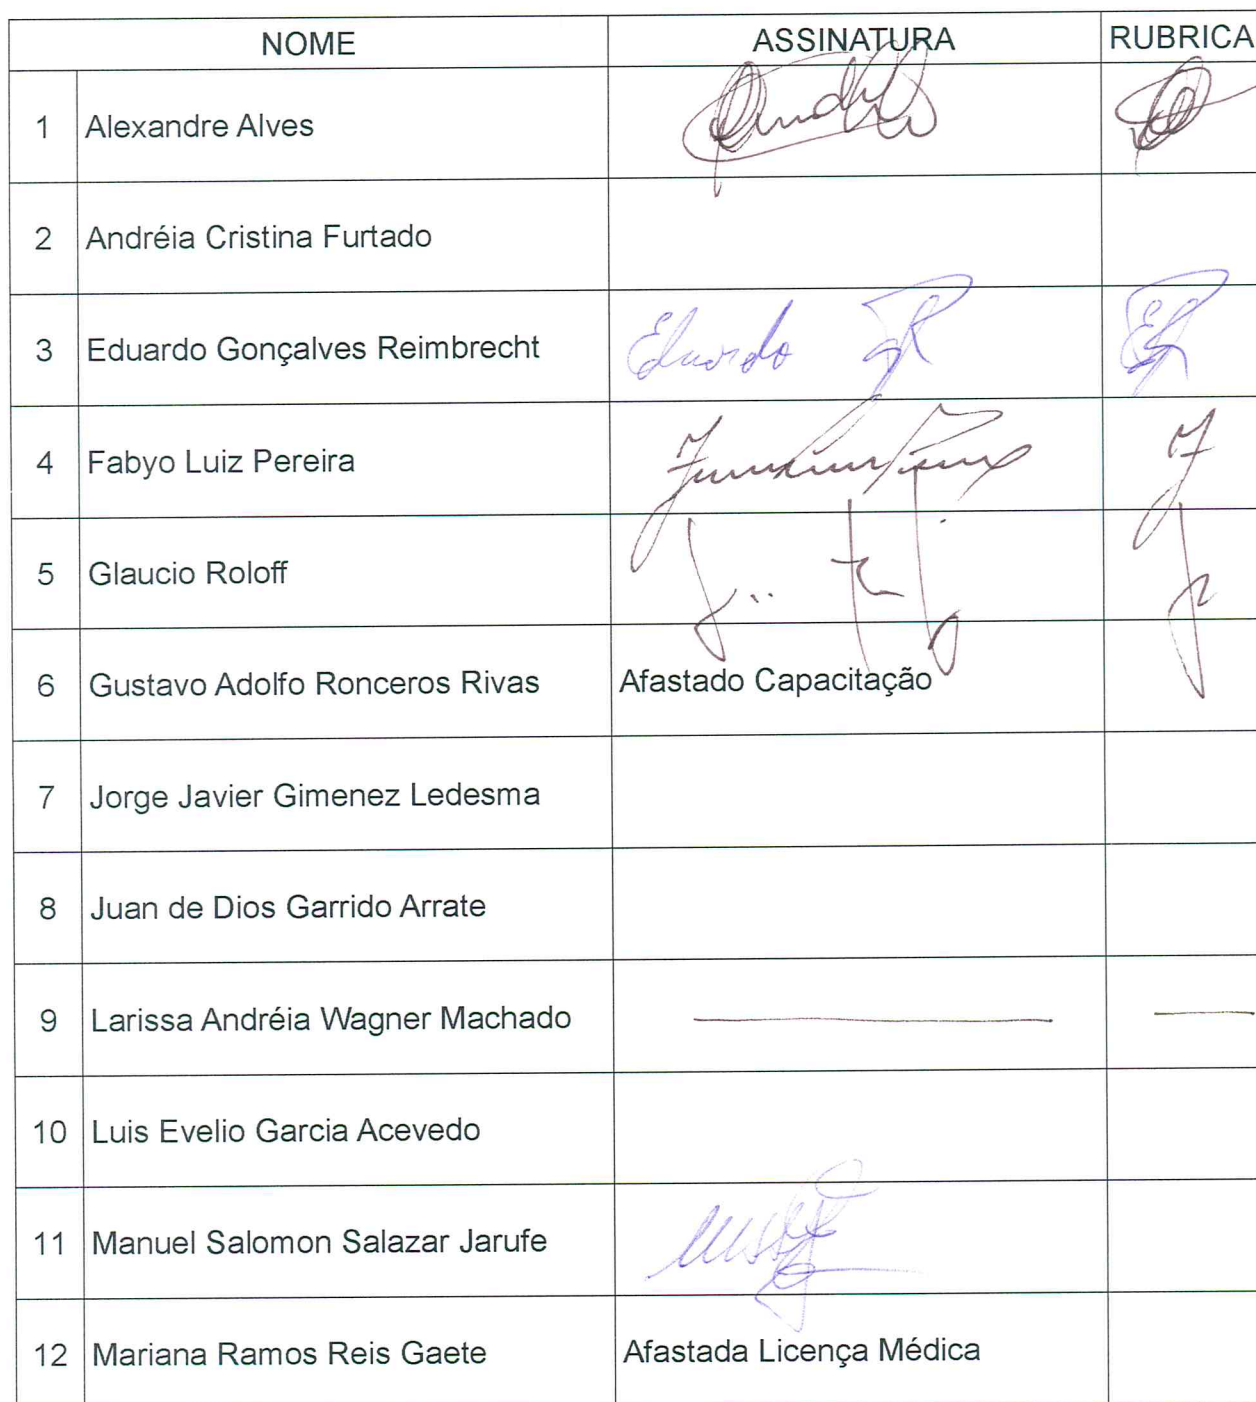 NOME ASSINATURA RUBRICA
1 Alexandre Alves
2 Andréia Cristina Furtado
3 Eduardo Gonçalves Reimbrecht Eduardo
4 Fabyo Luiz Pereira
5 Glaucio Roloff
6 Gustavo Adolfo Ronceros Rivas Afastado Capacitação
7 Jorge Javier Gimenez Ledesma
8 Juan de Dios Garrido Arrate
9 Larissa Andréia Wagner Machado
10 Luis Evelio Garcia Acevedo
11 Manuel Salomon Salazar Jarufe
12 Mariana Ramos Reis Gaete Afastada Licença Médica